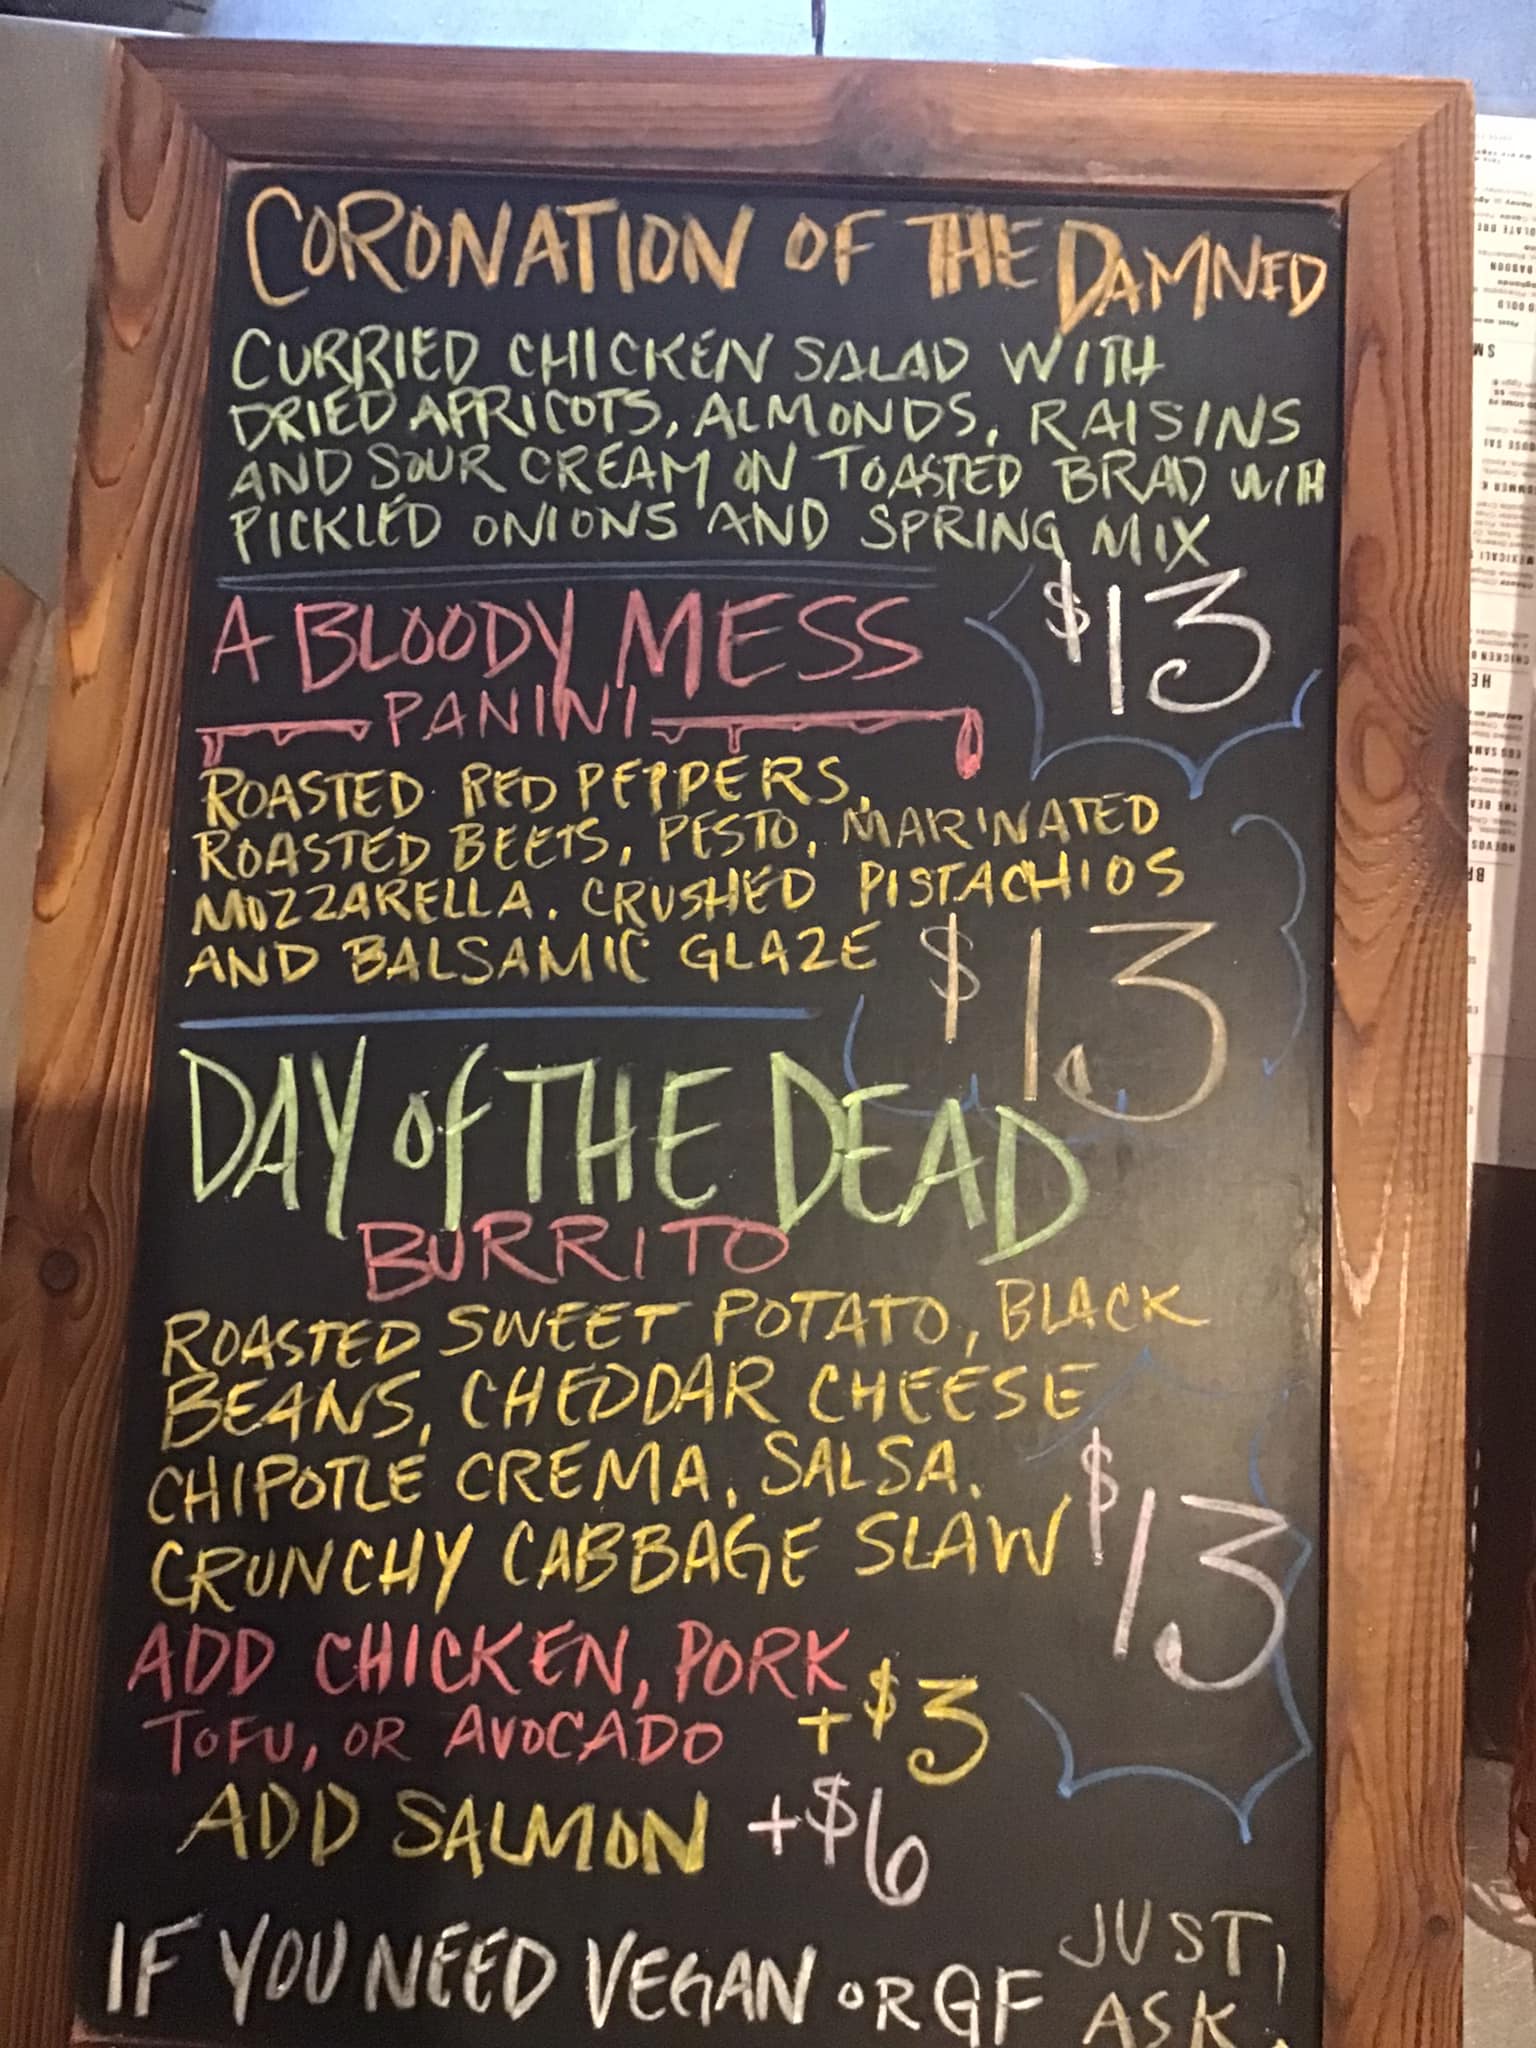 CORONATION OF THE DAMNED
CURRIED CHICKEN SALAD WITH
DRIED APRICOTS, ALMONDS, RAISINS
AND SOUR CREAM ON TOASTED BRAD WITH
PICKLED ONIONS AND SPRING MIX
$13
A BLOODY MESS
PANINI
ROASTED RED PEPPERS,
ROASTED BEETS, PESTO, MARINATED
MOZZARELLA, CRUSHED PISTACHIOS
AND BALSAMIC GLAZE
$13
DAY of THE DEAD
BURRITO
ROASTED SWEET POTATO, BLACK
BEANS, CHEDDAR CHEESE
CHIPOTLE CREMA, SALSA,
CRUNCHY CABBAGE SLAW
$13
ADD CHICKEN, PORK
TOFU, OR AVOCADO +$3
ADD SALMON +$6
IF YOU NEED VEGAN OR GF JUST
ASK!